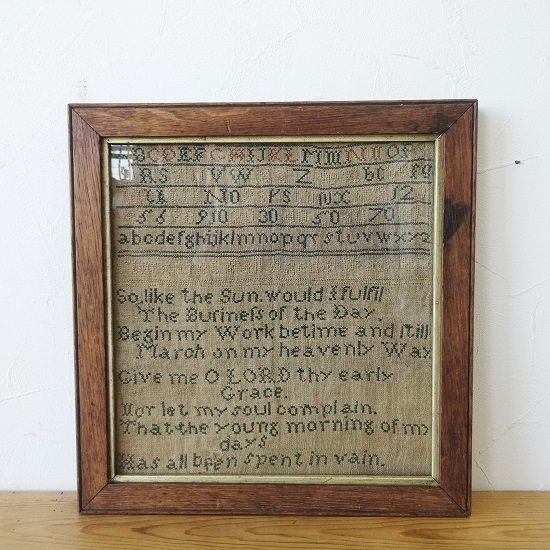 BCDEFGHIJKLMNOP
RS VW Z
NO PS NX 12
56 910 30 50 70
abcdefghijklmnopqrstuvwxyz
So, like the Sun. would I fulfil
The Busineſs of the Day.
Begin my Work betime and ſtill
March on my heavenly Way
Give me O LORD thy early
Grace.
Nor let my soul complain.
That the young morning of my
days
Has all been spent in vain.